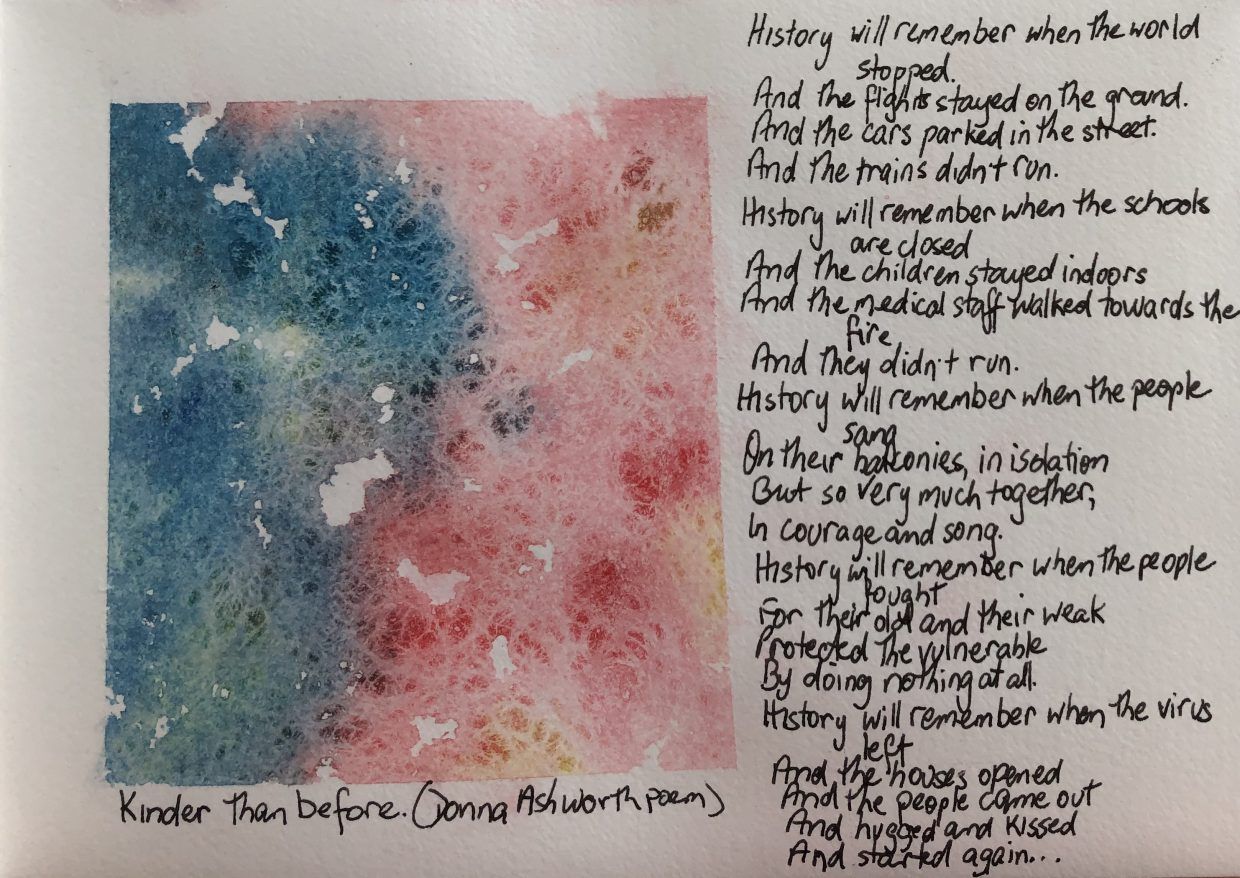 History will remember when the world
stopped.
And the flights stayed on the ground.
And the cars parked in the street.
And the trains didn't run.
History will remember when the schools
are closed
And the children stayed indoors
And the medical staff walked towards the
fire
And they didn't run.
History will remember when the people
sang
On their balconies, in isolation
But so very much together,
In courage and song.
History will remember when the people
fought
For their old and their weak
Protected the vulnerable
By doing nothing at all.
History will remember when the virus
left
And the houses opened
And the people came out
And hugged and kissed
And started again...
Kinder Than before. (Donna Ashworth poem)